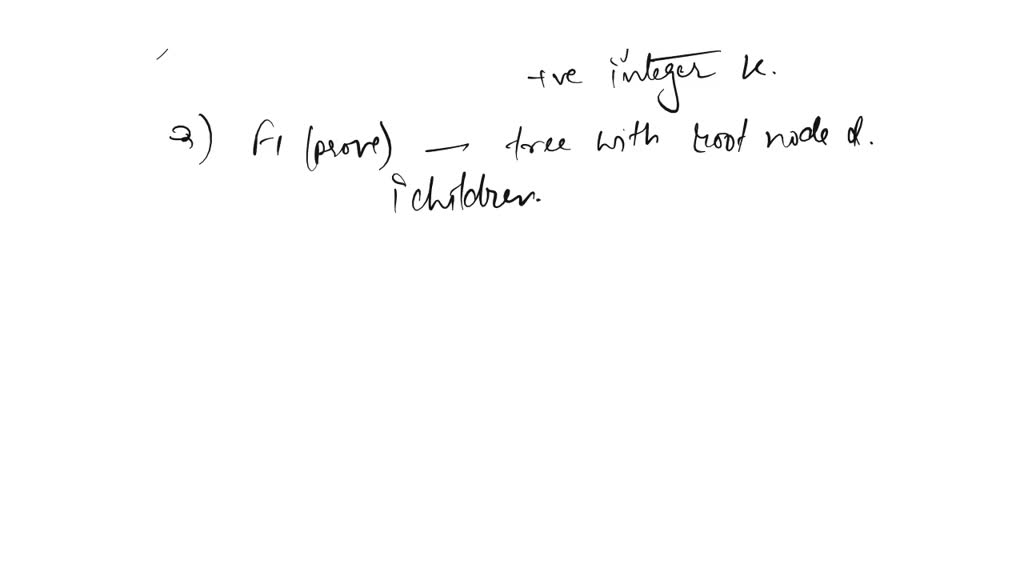 +ve integer k.
2) F1 (prove) — tree with root node &.
i children.